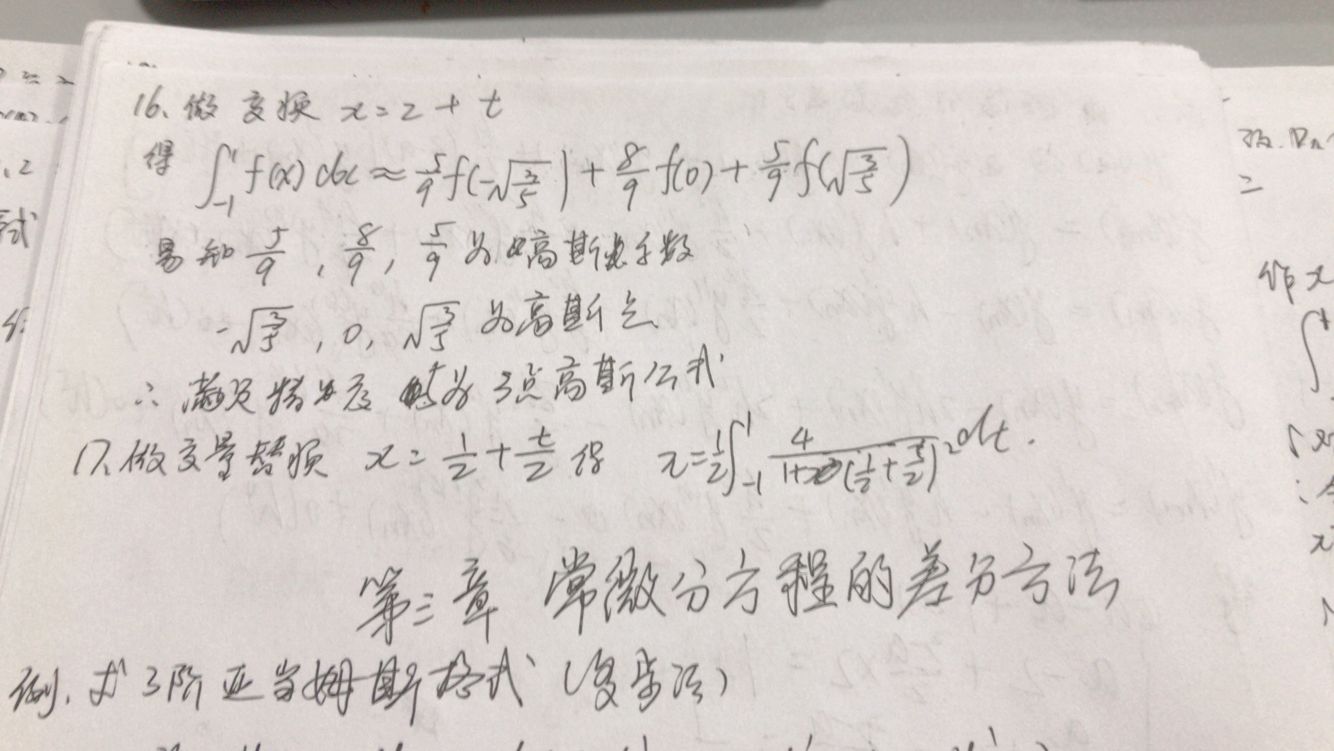 16、做变换 x=2+t
得 ∫₋₁¹ f(x)dx≈5/9 f(-√(3/5))+8/9 f(0)+5/9 f(√(3/5))
易知 5/9, 8/9, 5/9 为高斯系数
-√(3/5), 0, √(3/5) 为高斯点
∴ 满足精度 为 3点高斯公式
17、做变量替换 x=1/2+t/2 得 x=1/2∫₋₁¹ 4/(1+(1/2+t/2)²) dt.
第三章 常微分方程的差分方法
例、求3阶亚当姆斯格式(复步法)
作x